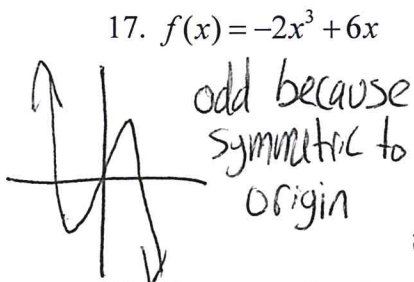 17. f(x) = −2x³ + 6x
odd because
symmetric to
origin